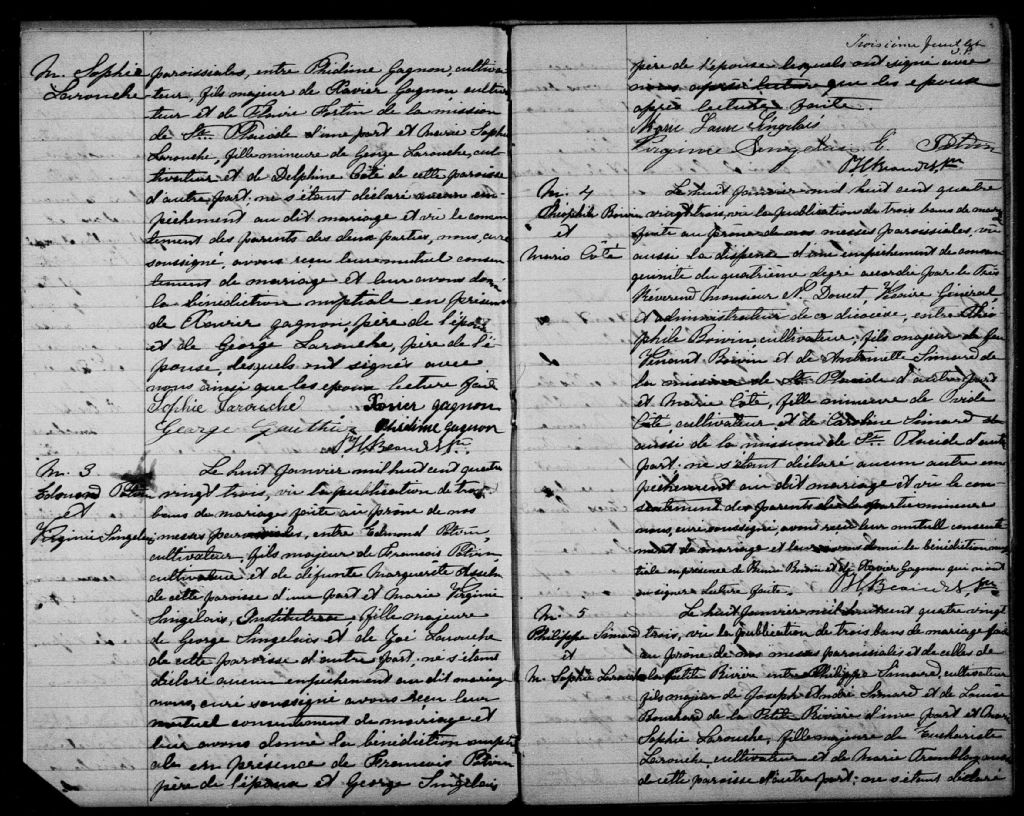 M. Sophie
Larouche
paroissiales, entre Phidime Gagnon, cultiva-
teur, fils majeur de Xavier Gagnon cultiva-
teur et de Flavie Fortin de la mission
de Ste Placide d'une part et Marie Sophie
Larouche, fille mineure de George Larouche, cul-
tivateur et de Delphine Côté de cette paroisse
d'autre part; ne s'étant déclaré aucun em-
pêchement au dit mariage et vu le consen-
tement des parents des deux parties, nous, curé
soussigné, avons reçu leur mutuel consen-
tement de mariage et leur avons donné
la bénédiction nuptiale en présence
de Xavier gagnon, père de l'époux
et de George Larouche, père de l'é-
pouse, lesquels ont signés avec
nous ainsi que les époux lecture faite
Sophie Larouche Xavier gagnon
George Gauthier Phidime gagnon
M. 3
Edouard Potvin
et
Virginie Singelais
Le huit Janvier mil huit cent quatre
vingt trois, vu la publication de trois
bans de mariage faite au prône de nos
messes paroissiales, entre Edmond Potvin,
cultivateur, fils majeur de Francois Potvin
cultivateur et de défunte Marguerite Asselin
de cette paroisse d'une part et Marie Virginie
Singelais, Institutrice, fille majeure
de George Singelais et de Zoé Larouche
de cette paroisse d'autre part; ne s'étant
déclaré aucun empêchement au dit mariage
nous, curé soussigné avons reçu leur
mutuel consentement de mariage et
leur avons donné la bénédiction nupti-
ale en présence de Francois Potvin
père de l'époux et George Singelais
Troisième feuillet
père de l'épouse lesquels ont signé avec
nous après lecture que les epoux
après lecture faite.
Marie Laure Singelais
Virginie Singelais E. Potvin
M. 4
Théophile Boivin
et
Marie Côté
Le huit Janvier mil huit cent quatre
vingt trois, vu la publication de trois bans de mariage
faite au prône de nos messes paroissiales, vu
aussi la dispense d'un empêchement de consan-
guinité du quatrième degré accordée par le Très
Révérend Monsieur N. Doucet Vicaire Général
et administrateur de ce diocèse, entre Théo-
phile Boivin cultivateur, fils majeur de feu
Vincent Boivin et de Antoinette Simard de
la mission de Ste Placide d'autre part
et Marie Côté, fille mineure de Ovide
Côté, cultivateur, et de Caroline Simard
aussi de la mission de Ste Placide d'autre
part; ne s'étant déclaré aucun autre em-
pêchement au dit mariage et vu le con-
sentement des parents de la partie mineure
nous, curé soussigné, avons reçu leur mutuel consente-
ment de mariage et leur avons donné la bénédiction nup-
tiale en présence de Boivin et de Xavier Gagnon qui n'ont
su signer Lecture faite.
M. 5
Philippe Simard
et
M. Sophie Larouche
Le huit Janvier mil huit cent quatre vingt
trois, vu la publication de trois bans de mariage faite
au prône de nos messes paroissiales et de celles de
la Petite Rivière entre Philippe Simard, cultivateur
fils majeur de Joseph André Simard et de Louise
Bouchard de la Petite Rivière d'une part et Marie
Sophie Larouche, fille majeure de Eucharistе
Larouche, cultivateur et de Marie Tremblay aussi
de cette paroisse d'autre part; ne s'étant déclaré